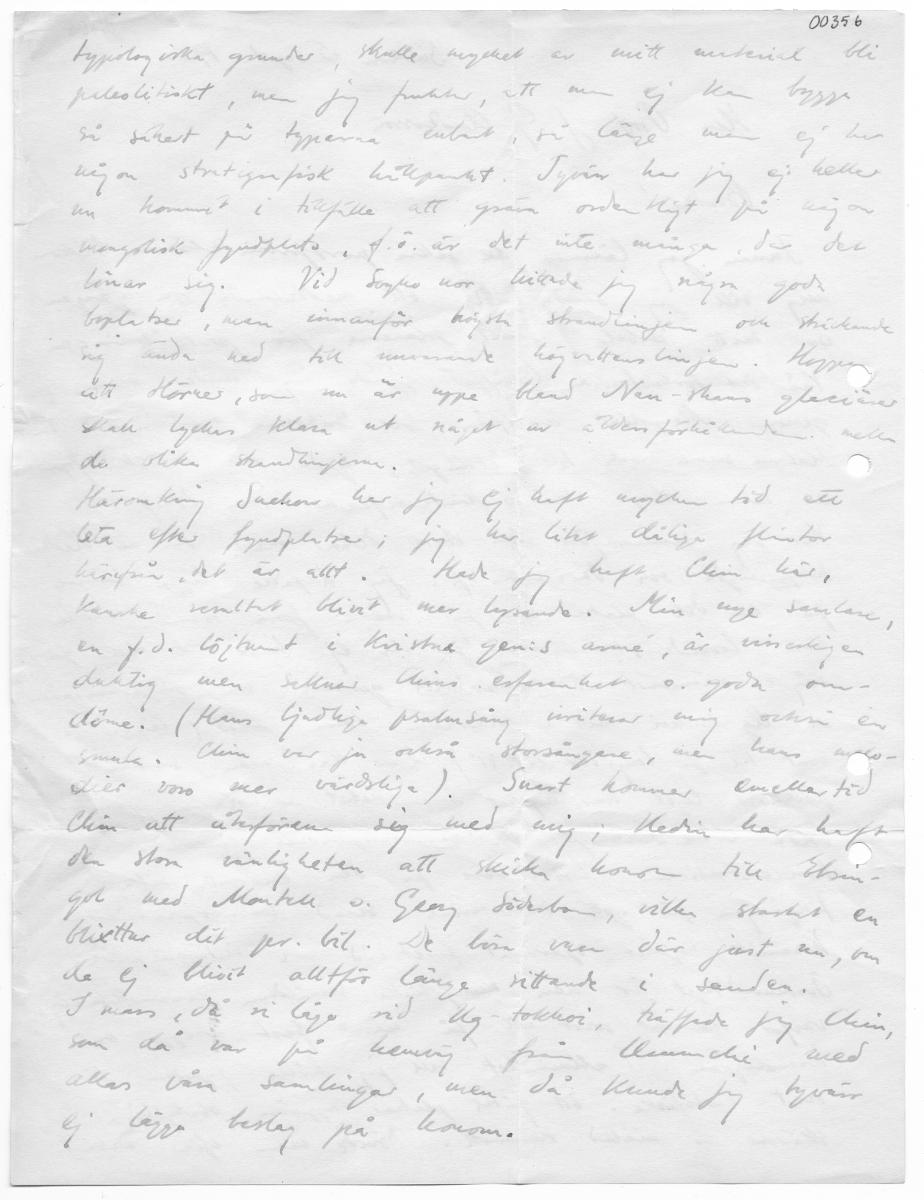 00356
typologiska grunder, skulle mycket av mitt material bli
paleolitiskt, men jag fruktar, att man ej kan bygga
så säkert på typerna enbart, så länge man ej har
någon stratigrafisk hållpunkt. Tyvärr har jag ej heller
nu kommit i tillfälle att gräva ordentligt på någon
mongolisk fyndplats, f.ö. är det inte många, där det
lönar sig. Vid Sogho nor hittade jag några goda
boplatser, men innanför högsta strandlinjen och sträckande
sig ända ned till nuvarande högvattenslinjen. Hoppas
att Hörner, som nu är uppe bland Nan-shans glaciärer
skall lyckas klara ut något av åldersförhållanden mellan
de olika strandlinjerna.
Häromkring Suchow har jag ej haft mycken tid att
leta efter fyndplatser; jag har litet dåliga flintor
härifrån, det är allt. Hade jag haft Chin här,
kanske resultatet blivit mer lysande. Min nye samlare,
en f.d. löjtnant i kristna gen:s armé, är visserligen
duktig men saknar Chins erfarenhet o. goda om-
döme. (Hans ljudliga psalmsång irriterar mig också en
smula. Chin var ju också storsångare, men hans melo-
dier voro mer världsliga). Snart kommer emellertid
Chin att återförena sig med mig; Hedin har haft
den stora vänligheten att skicka honom till Etsin-
gol med Montell o. Georg Söderbom, vilka startat en
blixttur dit per bil. De böra vara där just nu, om
de ej blivit alltför länge sittande i sanden.
I mars, då vi lågo vid Ug-tokhoi, träffade jag Chin,
som då var på hemväg från Urumchi med
allas våra samlingar, men då kunde jag tyvärr
ej lägga beslag på honom.